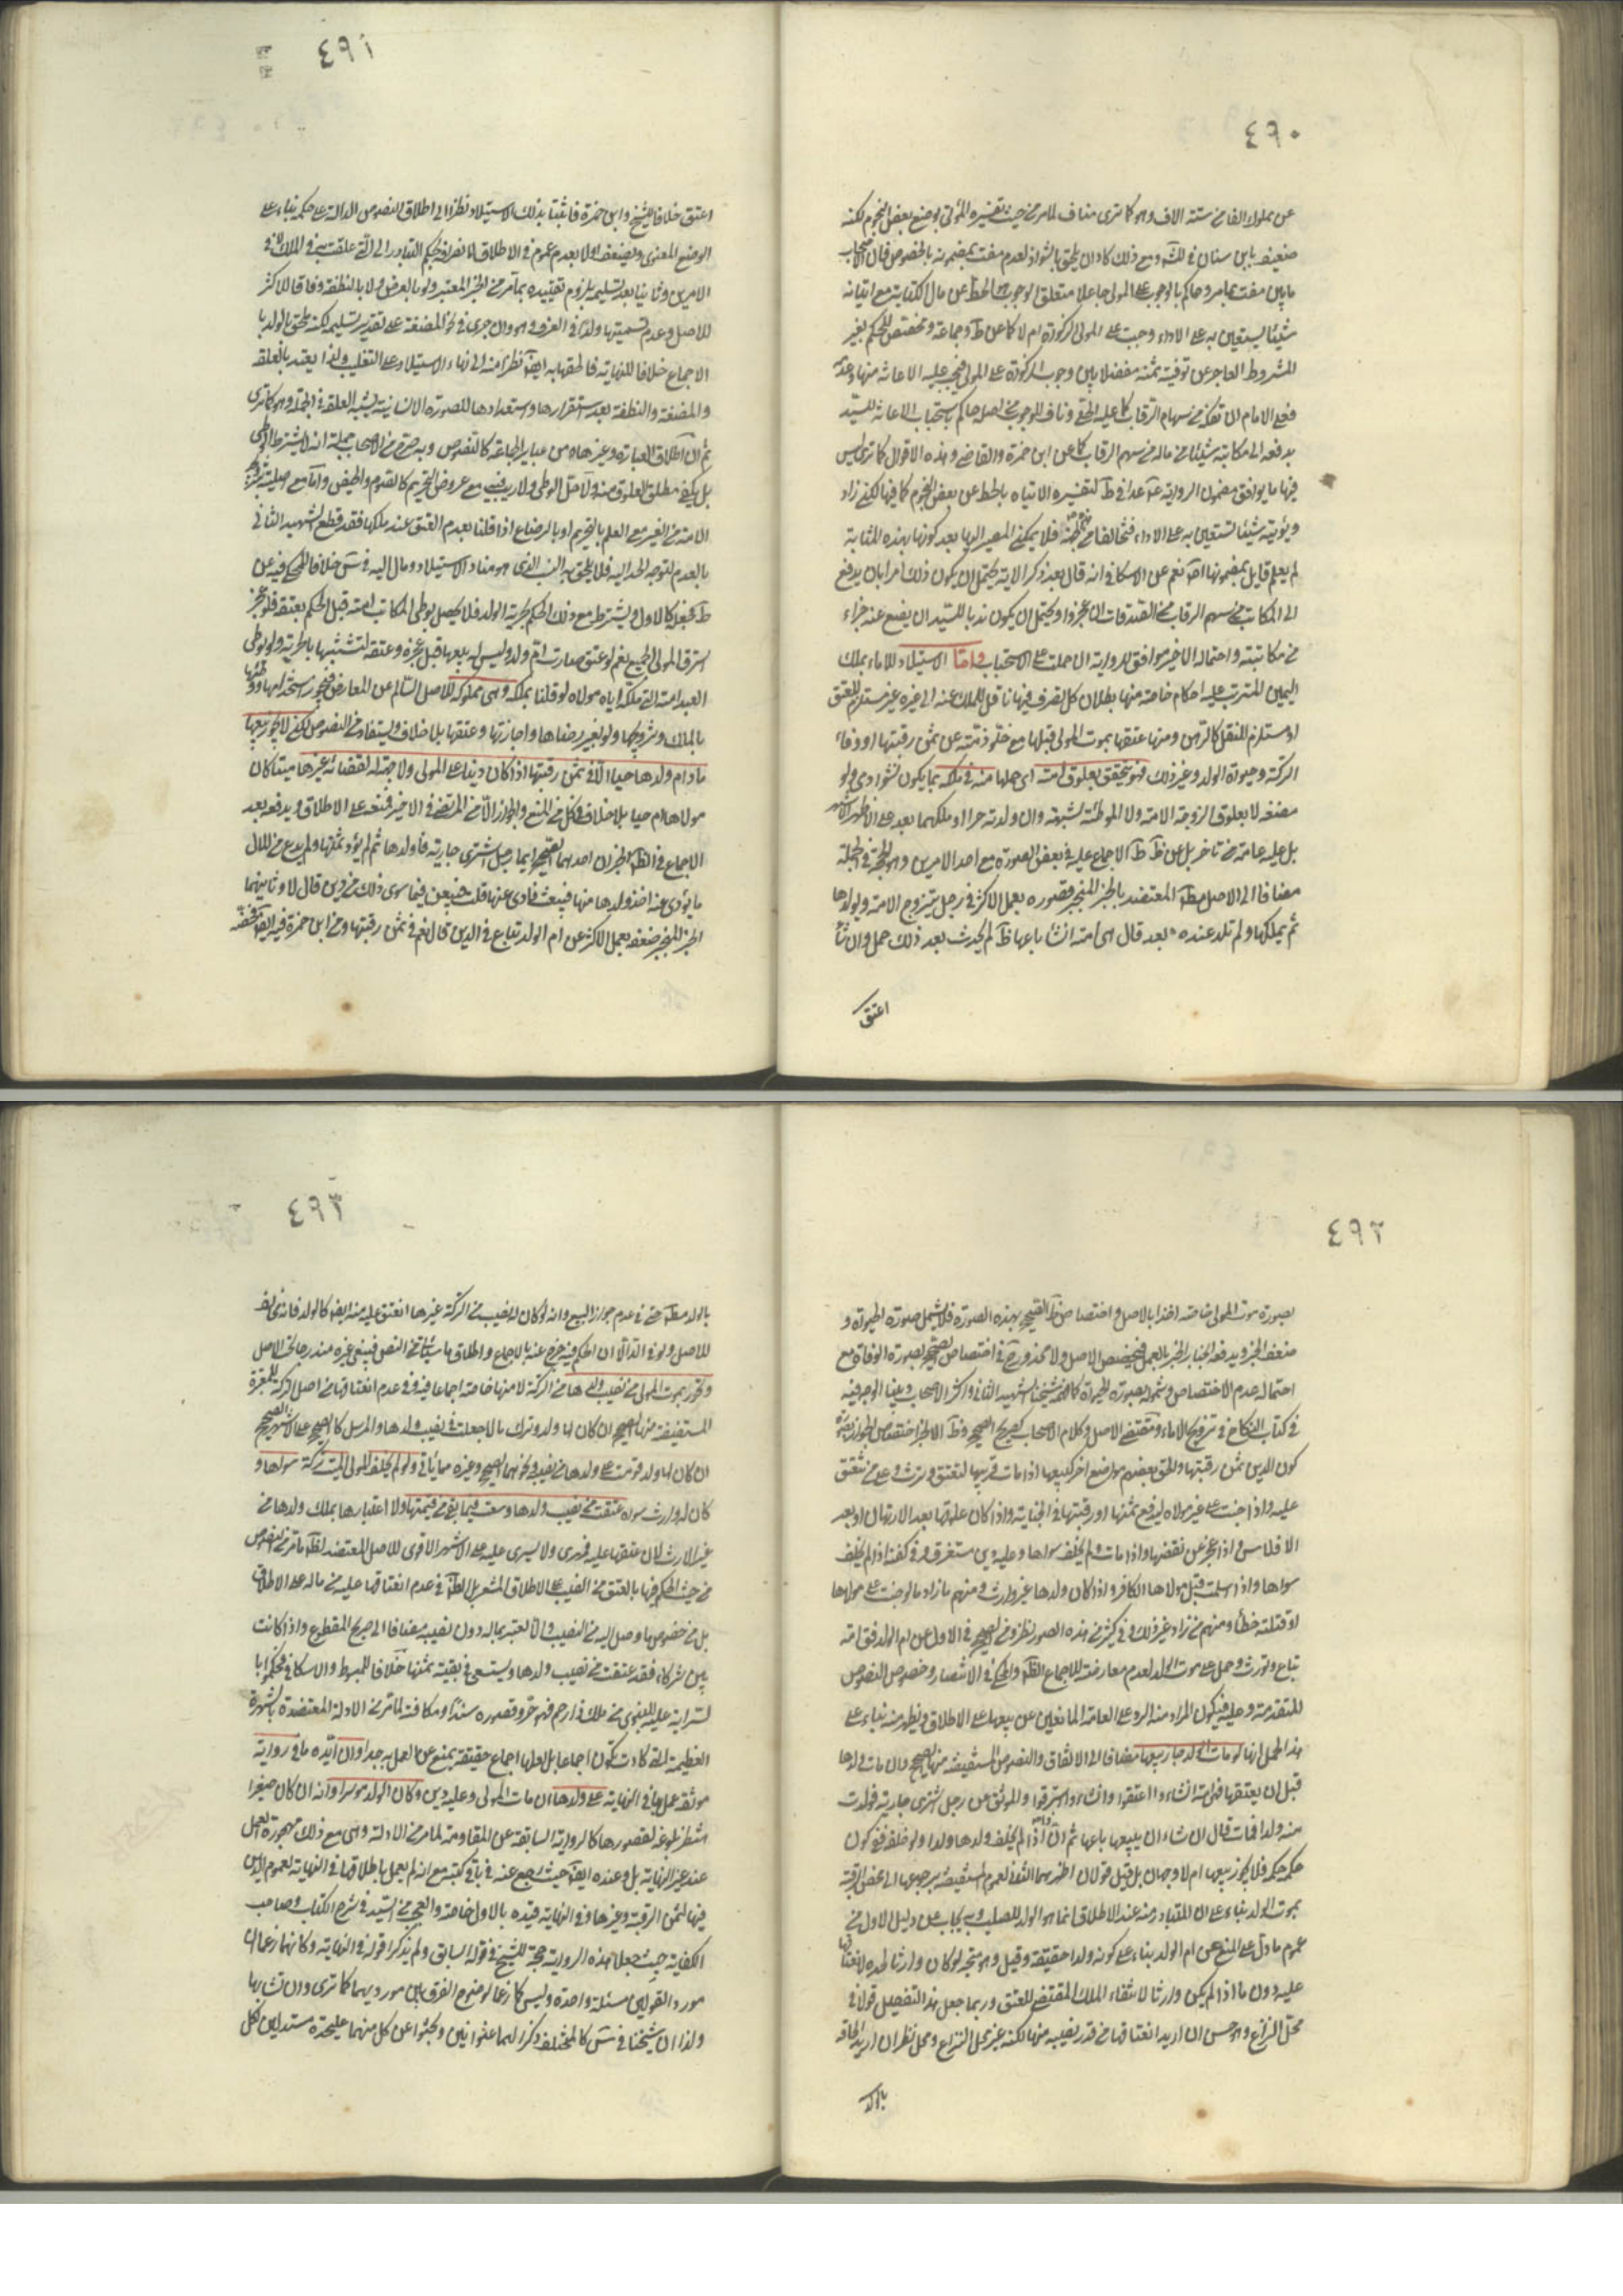 ٤٩٠
عن مملوك الفا من ستة الاف وهو كما ترى مناف للامر من حيث تفسيره المؤتى بوضع بعض النجوم لكنه
ضعيف بابن سنان في لك ومع ذلك كاد ان يلحق بالشواذ لعدم مفت بمضمونه بالخصوص فان الاصحاب
ما بين مفت بما مر وحاكم بالوجوب على المولى جاعلا متعلق الوجوب الحط عن مال الكتابة مع ايتائه
شيئا يستعين به على الاداء وجبت على المولى الزكوة ام لا كما عن ط وجماعة ومختص للحكم بغير
المشروط العاجز عن توفية ثمنه مفصلا بين وجوب الزكوة على المولى فيجب عليه الاعانة منها وعدمه
فعلى الامام ان يفكه من سهام الرقاب كما عليه الحلي وناف للوجوب من اصله حاكم باستحباب الاعانة للسيد
بدفعه الى مكاتبه شيئا من ماله من سهم الرقاب كما عن ابن حمزة والقاضي وهذه الاقوال كما ترى ليس
فيها ما يوافق مضمون الرواية عدا في ط لتفسيره الايتاء بالحط عن بعض النجوم كما فيها لكنه زاد
ويؤتيه شيئا يستعين به على الاداء فخالفا من فلا يمكن المصير اليها بعد كونها بهذه المثابة
لم يعلم قايل بمضمونها نعم عن الاسكافي انه قال بعد ذكر الاية يحتمل ان يكون ذلك امرا بان يدفع
الى المكاتب من سهم الرقاب من الصدقات ان عجزوا ويحتمل ان يكون ندبا للسيد ان يضع عنه جزاء
من مكاتبته واحتماله الاخير موافق للرواية ان حملت على الاستحباب واما الاستيلاد للاماء بملك
اليمين المترتب عليه احكام خاصة منها بطلان كل تصرف فيها ناقل للملك عنه الى غيره غير مستلزم للعتق
او مستلزم للنقل كالرهن ومنها عتقها بموت المولى قبلها مع خلو ذمته عن ثمن رقبتها او وفاء
التركة وحيوة الولد وغير ذلك فهو يتحقق بعلوق امته اي حملها منه في ملكه بما يكون نشو ادمي ولو
مضغة لا بعلوق الزوجة الامة ولا الموطئة بشبهة وان ولدته حرا او ملكهما بعد على الاظهر الاشهر
بل عليه عامة من تاخر بل عن ظ ط الاجماع عليه في بعض الصورة مع احد الامرين وهو الحجة في الجملة
مضافا الى الاصل مط المعتضد بالخبر المنجبر قصوره بعمل الاكثر في رجل يتزوج الامة ويولدها
ثم يملكها ولم تلد عنده بعد قال هي امته ان شاء باعها ما لم يحدث بعد ذلك حمل وان شاء
اعتق
٤٩١
اعتق خلافا للشيخ وابن حمزة فاثبتا بذلك الاستيلاد نظرا الى اطلاق النصوص الدالة على حكمه بناء على
الوضع المعنوي ويضعف اولا بعدم عموم في الاطلاق لانصرافه بحكم التبادر الى التي علقت منه في الملك لا في
الامرين وثانيا بعد تسليمه بلزوم تقييده بما مر من الخبر المعتبر ولو بالعرض ولا بالنطفة وفاقا للاكثر
للاصل وعدم تسميتها ولدا في العرف وهو وان جرى في نحو المضغة على تقدير تسليمه لكنه ملحق بالولد با
الاجماع خلافا للنهاية فالحقها به ايضا نظرا منه الى بناء الاستيلاد على التغليب ولذا يعتد بالعلقة
والمضغة والنطفة بعد استقرارها واستعدادها للصورة الانسانية يشبه العلقة في الجملة وهو كما ترى
ثم ان اطلاق العبارة وغيرها من عباير الجماعة كالنصوص وبه صرح من الاصحاب جملة انه لا يشترط الوطي
بل يكفي مطلق العلوق منه ولا حل الوطي ولا ريب فيه مع عروض التحريم كالصوم والحيض واما مع اصليته
الامة من الغير مع العلم بالتحريم او بالرضاع اذا قلنا بعدم العتق عند ملكها فقد قطع الشهيد الثاني
بالعدم لتوجه الحد اليه فلا يلحق به النسب الذي هو مناط الاستيلاد ومال اليه في س خلافا للمحكي فيه عن
ط فجعله كالاول ويشترط مع ذلك الحكم بحرية الولد فلا يحصل بوطي المكاتب امته قبل الحكم بعتقه فلو عجز
استرق المولى الجميع نعم لو عتق صارت ام ولد وليس له بيعها قبل عجزه وعتقه لتشبثها بالحرية ولو وطي
العبد امته التي ملكه اياه مولاه لو قلنا بملكه وهي مملوكه للاصل السالم عن المعارض فيجوز استخدامها ووطئها
بالملك وتزويجها ولو بغير رضاها واجازتها وعتقها بلا خلاف ويستفاد من النصوص لكن لا يجوز بيعها
ما دام ولدها حيا الا في ثمن رقبتها اذا كان دينا على المولى ولا جهة له لقضائه غيرها ميتا كان
مولاها ام حيا بلا خلاف في كل من المنع والجواز الا من المرتضى في الاخير فمنعه على الاطلاق ويدفعه بعد
الاجماع في الظ الخبران احدهما الصحيح ايما رجل اشترى جارية فاولدها ثم لم يؤد ثمنها ولم يدع من المال
ما يؤدى عنه اخذ ولدها منها فبيعت فادى عنها قلت فيبعن فيما سوى ذلك من دين قال لا وثانيهما
الخبر المنجبر ضعفه بعمل الاكثر عن ام الولد تباع في الدين قال نعم في ثمن رقبتها وعن ابن حمزة فيه ايضا فخصه
٤٩٢
بصورة موت المولى خاصة اخذا بالاصل واختصاص ظ الصحيح بهذه الصورة فلا يشمل صورة الحيوة و
ضعف الخبر ويدفعه انجبار الخبر بالعمل فيخصص الاصل ولا محذور في اختصاص الصحيح بصورة الوفاة مع
احتماله عدم الاختصاص وشموله بصورة الحيوة كما فهمه شيخنا الشهيد الثاني واكثر الاصحاب وبينا الوجه فيه
في كتاب النكاح في تزويج الاماء ومقتضى الاصل وكلام الاصحاب كصريح الصحيح وظ الاخر اختصاص الجواز بصورة
كون الدين ثمن رقبتها والحق بعضهم مواضع اخر كبيعها اذا مات قريبها لتعتق وترث وعلى من تنعتق
عليه واذا جنت على غير مولاه ليدفع ثمنها او رقبتها في الجناية واذا كان علوقها بعد الارتهان او بعد
الافلاس واذا عجز عن نفقتها واذا مات ولم يخلف سواها وعليه دين مستغرق وفي كفنه اذا لم يخلف
سواها واذا اسلمت قبل مولاها الكافر واذا كان ولدها غير وارث ومنهم ما زاد ما لو جنت على مولاها
او قتلته خطأ ومنهم من زاد غير ذلك وفي كثير من هذه الصور نظر ومن الصحيح في الاول عن ام الولد قال امة
تباع وتورث وحمل على موت الولد لعدم معارضته للاجماع الظ والمحكي في الانتصار وخصوص النصوص
المتقدمة وعليه فيكون المراد منه الرد على العامة المانعين عن بيعها على الاطلاق ويظهر منه بناء على
هذا الحمل انها لو مات الولد جاز بيعها مضافا الى الاتفاق والنصوص المستفيضة منها الصحيح وان مات ولدها
قبل ان يعتقها فهي امة ان شاءوا اعتقوا وان شاءوا استرقوا والموثق عن رجل اشترى جارية فولدت
منه ولدا فمات قال ان شاء ان يبيعها باعها ثم ان هذا اذا لم يخلف ولدها ولدا ولو خلفه ففي كون
حكمه حكمه فلا يجوز بيعها ام لا وجهان بل قيل قولان اظهرهما الثاني لعموم المستفيضة برجوعها الى محض الرقية
بموت الولد بناء على ان المتبادر منه عند الاطلاق انما هو الولد للصلب وبه يجاب عن دليل الاول من
عموم ما دل على المنع عن ام الولد بناء على كونه ولدا حقيقة وقيل وهو متجه لو كان وارثا لجده لانعتاقها
عليه دون ما اذا لم يكن وارثا لانتفاء الملك المقتضي للعتق وربما جعل هذا التفصيل قولا في
محل النزاع وهو حسن ان اريد انعتاقها من قدر نصيبه منها لكنه غير محل النزاع ومحل نظر ان اريد الحاقه
بالولد
٤٩٣
بالولد مط حتى في عدم جواز البيع وانه لو كان له نصيب من التركة غيرها انعتق عليه منه ايضا كالولد فانه في نظر
للاصل ولو في الثاني الا ان الحكم فيه خرج عنه بالاجماع واطلاق ما سيأتي من النص فيبقى غيره مندرجا تحت الاصل
وتحرر بموت المولى من نصيب ولدها من التركة لا منها خاصة اجماعا فيه وفي عدم انعتاقها من اصل التركة للمعتبرة
المستفيضة منها الصحيح ان كان لها ولد وترك مالا جعلت في نصيب ولدها والمرسل كالصحيح على الاشهر الصحيح
ان كان لها ولد قومت على ولدها من نصيبه ونحوهما الصحيح وغيره مما يأتي ولو لم يخلف المولى الميت تركة سواها و
كان له وارث سواه عتقت من نصيب ولدها وسعت فيما بقي من قيمتها ولا اعتبار هنا بملك ولدها من
غير الارث لان عتقها عليه قهري ولا يسري عليه على الاشهر الاقوى للاصل المعتضد بظ ما مر من النصوص
من حيث الحكم فيها بالعتق من النصيب على الاطلاق المشعر بل الظ في عدم انعتاقها عليه من ماله على الاطلاق
بل من خصوص ما وصل اليه من النصيب والا لعتبر بماله دون نصيبه مضافا الى صريح المقطوع واذا كانت
بين شركاء فقد عتقت من نصيب ولدها ويستسعى في بقية ثمنها خلافا للمبسوط والاسكافي فحكموا با
لسراية عليه للنبوي من ملك ذا رحم فهو حر وقصوره سندا ومكافئة لما مر من الادلة المعتضدة بالشهرة
العظيمة التي كادت تكون اجماعا بل لعلها اجماع حقيقة يمنع عن العمل به جدا وان ايده ما في رواية
موثقة عمل بها في النهاية على ولدها ان مات المولى وعليه دين وكان الولد موسرا وانه ان كان صغيرا
انتظر بلوغه لقصورها كالرواية السابقة عن المقاومة لما مر من الادلة وهي مع ذلك مهجورة العمل
عند غير النهاية بل وعنده ايضا حيث رجع عنه في باقي كتبه مع انه لم يعمل باطلاقها في النهاية لعموم الدين
فيها لثمن الرقبة وغيرها وفي النهاية قيده بالاول خاصة والعجب من السيد في شرح الكتاب وصاحب
الكفاية حيث جعلا هذه الرواية حجة للشيخ في قوله السابق ولم يذكرا قوله في النهاية وكانهما زعما ان
مورد القولين مسئلة واحدة وليس كما زعما لوضوح الفرق بين مورديهما كما ترى وان تشابها
ولذا ان شيخنا في س كالمختلف ذكرا لهما عنوانين وبحثوا عن كل منهما عليحدة مستدلين لكل